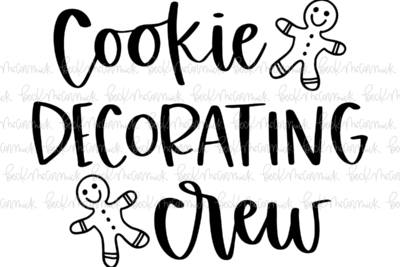 Cookie
DECORATING
crew